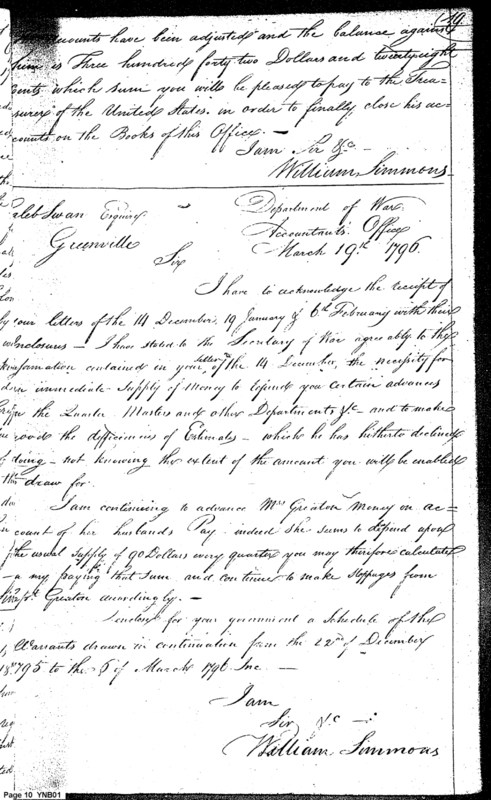 19
accounts have been adjusted and the balance against
him is Three hundred forty two Dollars and twenty eight
cents which sum you will be pleased to pay to the Trea=
surer of the United States. in order to finally close his ac=
counts on the Books of this Office. —
I am Sir &c —
William Simmons
Caleb Swan Esquire
Department of War
Greenville
Accountants Office
March 19th 1796.
Sir
I have to acknowledge the receipt of
your letters of the 14 December, 19 January & 6th February with their
enclosures — I have stated to the Secretary of War agreably to the
information contained in your letter of the 14 December, the necessity for
an immediate supply of Money to refund you certain advances
in the Quarter Masters and other Departments &c — and to make
good the difficiencies of Estimates — which he has hitherto declined
doing — not knowing the extent of the amount you will be enabled
to draw for.
I am continuing to advance Mrs Greaton Money on ac=
count of her husbands Pay. indeed she seems to depend upon
the usual supply of 90 Dollars every quarter you may therefore calculate
my paying that sum and continue to make stoppages from
Greaton accordingly. —
I enclose for your government a Schedule of the
Warrants drawn in continuation from the 22nd of December
1795 to the 5 of March 1796 Inc. —
I am
Sir &c —
William Simmons
Page 10 YNB01